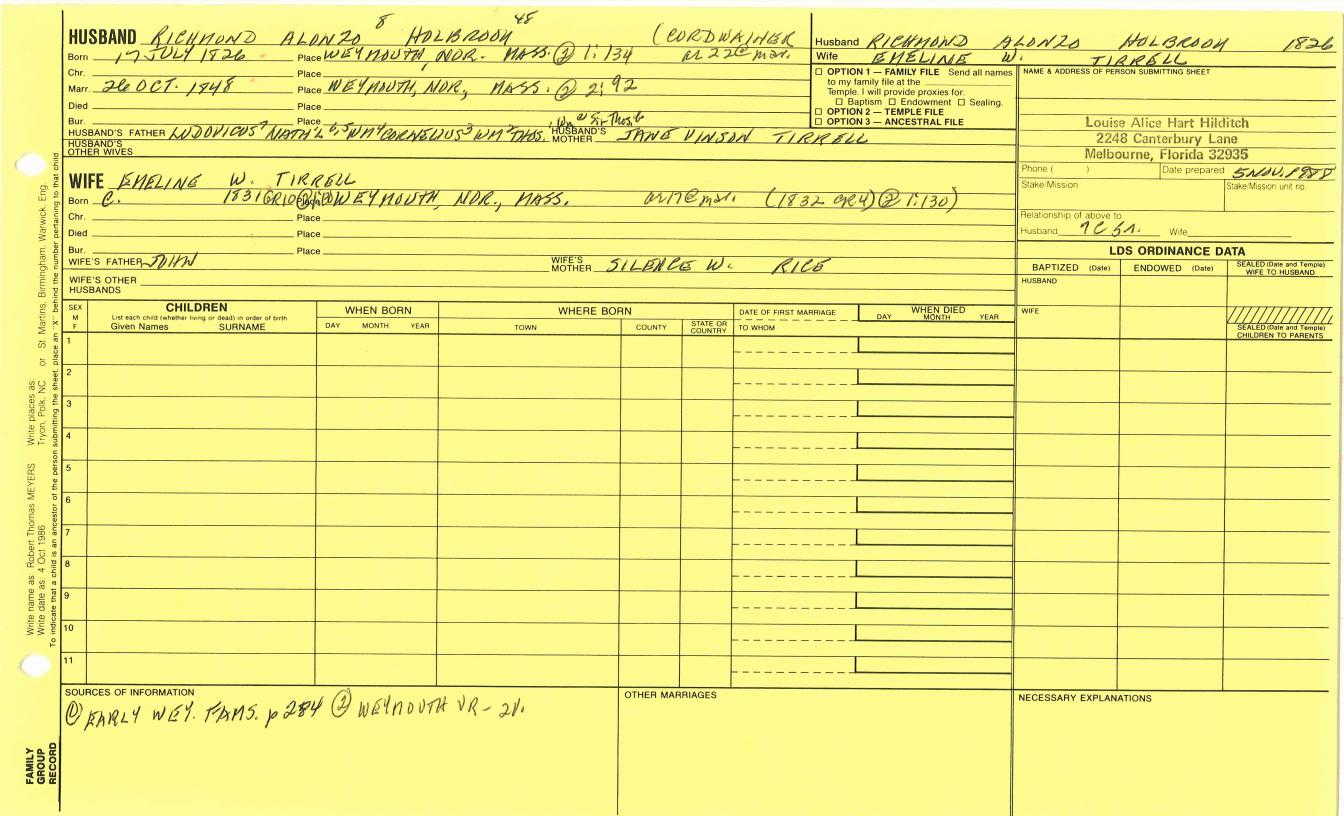 8 48
HUSBAND RICHMOND ALONZO HOLBROOK (CORDWAINER
Born 17 JULY 1826 Place WEYMOUTH, NOR. MASS. ② 1:134 or 22 @ mar.
Chr. Place
Marr. 26 OCT. 1848 Place WEYMOUTH, NOR., MASS. ② 2:92
Died Place
Bur. Place
HUSBAND'S FATHER LUDOVICUS⁷ NATH'L⁶,⁵ WM⁴ CORNELIUS³ WM² THOS. HUSBAND'S MOTHER JANE VINSON TIRRELL
HUSBAND'S OTHER WIVES
WIFE EMELINE W. TIRRELL
Born C. 1831 Place WEYMOUTH, NOR., MASS. or 17 @ mar. (1832 GR4) ② 1:130)
Chr. Place
Died Place
Bur. Place
WIFE'S FATHER JOHN WIFE'S MOTHER SILENCE W. RICE
WIFE'S OTHER HUSBANDS
Husband RICHMOND ALONZO HOLBROOK 1826
Wife EMELINE W. TIRRELL
☐ OPTION 1 — FAMILY FILE Send all names
to my family file at the
Temple. I will provide proxies for:
☐ Baptism ☐ Endowment ☐ Sealing.
☐ OPTION 2 — TEMPLE FILE
☐ OPTION 3 — ANCESTRAL FILE
NAME & ADDRESS OF PERSON SUBMITTING SHEET
Louise Alice Hart Hilditch
2248 Canterbury Lane
Melbourne, Florida 32935
Phone ( ) Date prepared 5 NOV. 1988
Stake/Mission Stake/Mission unit no.
Relationship of above to
Husband 7C 5r. Wife
LDS ORDINANCE DATA
BAPTIZED (Date) ENDOWED (Date) SEALED (Date and Temple) WIFE TO HUSBAND
HUSBAND
WIFE
SEALED (Date and Temple) CHILDREN TO PARENTS
SEX M F
CHILDREN
List each child (whether living or dead) in order of birth
Given Names SURNAME
WHEN BORN
DAY MONTH YEAR
WHERE BORN
TOWN COUNTY STATE OR COUNTRY
DATE OF FIRST MARRIAGE
TO WHOM
WHEN DIED
DAY MONTH YEAR
1
2
3
4
5
6
7
8
9
10
11
SOURCES OF INFORMATION
① EARLY WEY. FAMS. p 284 ② WEYMOUTH VR - 2V.
OTHER MARRIAGES
NECESSARY EXPLANATIONS
Write name as: Robert Thomas MEYERS Write places as: Tryon, Polk, NC or St. Martins, Birmingham, Warwick, Eng.
Write date as: 4 Oct 1986
To indicate that a child is an ancestor of the person submitting the sheet, place an "X" behind the number pertaining to that child
FAMILY
GROUP
RECORD